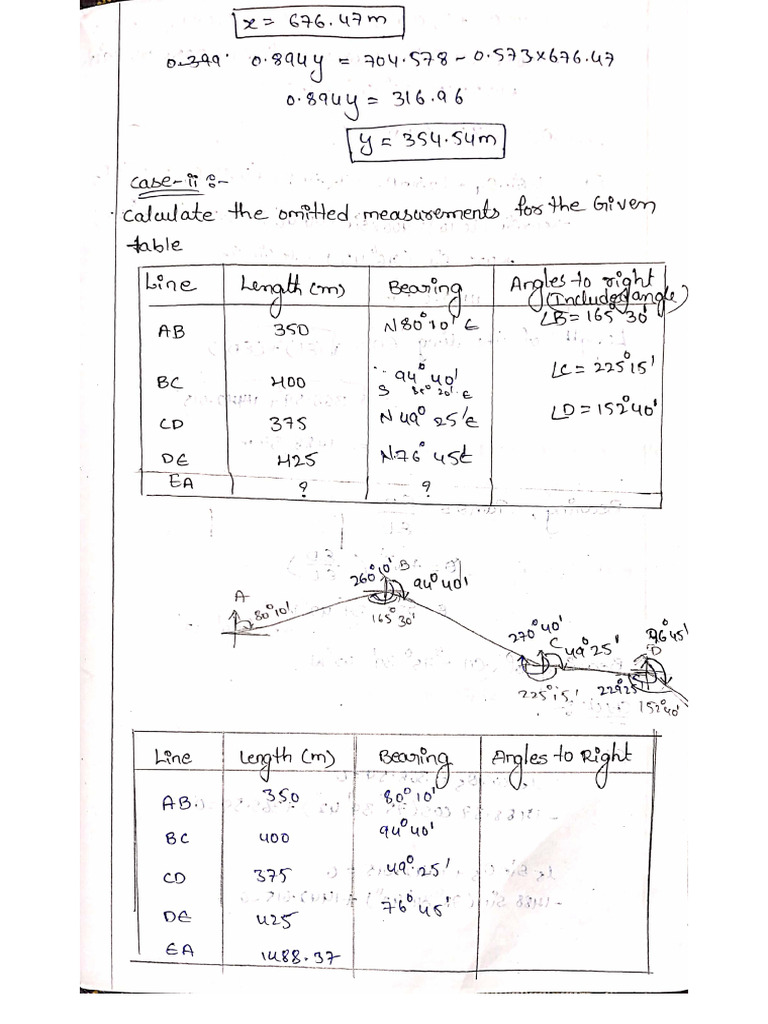 x = 676.47m
0.399 0.894y = 704.578 - 0.573×676.47
0.894y = 316.96
y = 354.54m
Case-ii :-
Calculate the omitted measurements for the Given
table
Line Length (m) Bearing Angles to right (Included angle)
AB 350 N80°10' E ∠B = 165° 30'
BC 400 94° 40' ∠C = 225°15'
S 85° 20' E
CD 375 N49° 25' E ∠D = 152°40'
DE 425 N76° 45' E
EA ? ?
A 80°10'
260°10' B 94°40'
165° 30'
270°40' C 49° 25'
225°15' 229°25'
76°45' D
152°40'
Line Length (m) Bearing Angles to Right
AB. 350 80°10'
BC 400 94°40'
CD 375 49°.25'
DE 425 76° 45'
EA 1488.37